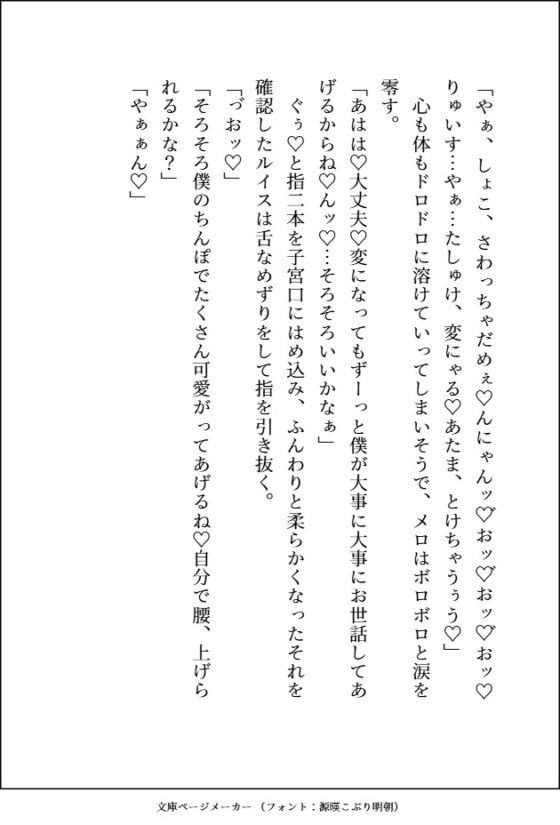 「やぁ、しょこ、さわっちゃだめぇ♡んにゃんッ♡゙おッ♡゙おッ♡゙おッ♡
りゅいす…やぁ…たしゅけ、変にゃる♡あたま、とけちゃうぅう♡」
心も体もドロドロに溶けていってしまいそうで、メロはボロボロと涙を
零す。
「あはは♡大丈夫♡変になってもずーっと僕が大事に大事にお世話してあ
げるからね♡んッ♡…そろそろいいかなぁ」
ぐぅ♡と指二本を子宮口にはめ込み、ふんわりと柔らかくなったそれを
確認したルイスは舌なめずりをして指を引き抜く。
「づおッ♡」
「そろそろ僕のちんぽでたくさん可愛がってあげるね♡自分で腰、上げら
れるかな？」
「やぁぁん♡」
文庫ページメーカー（フォント：源暎こぶり明朝）